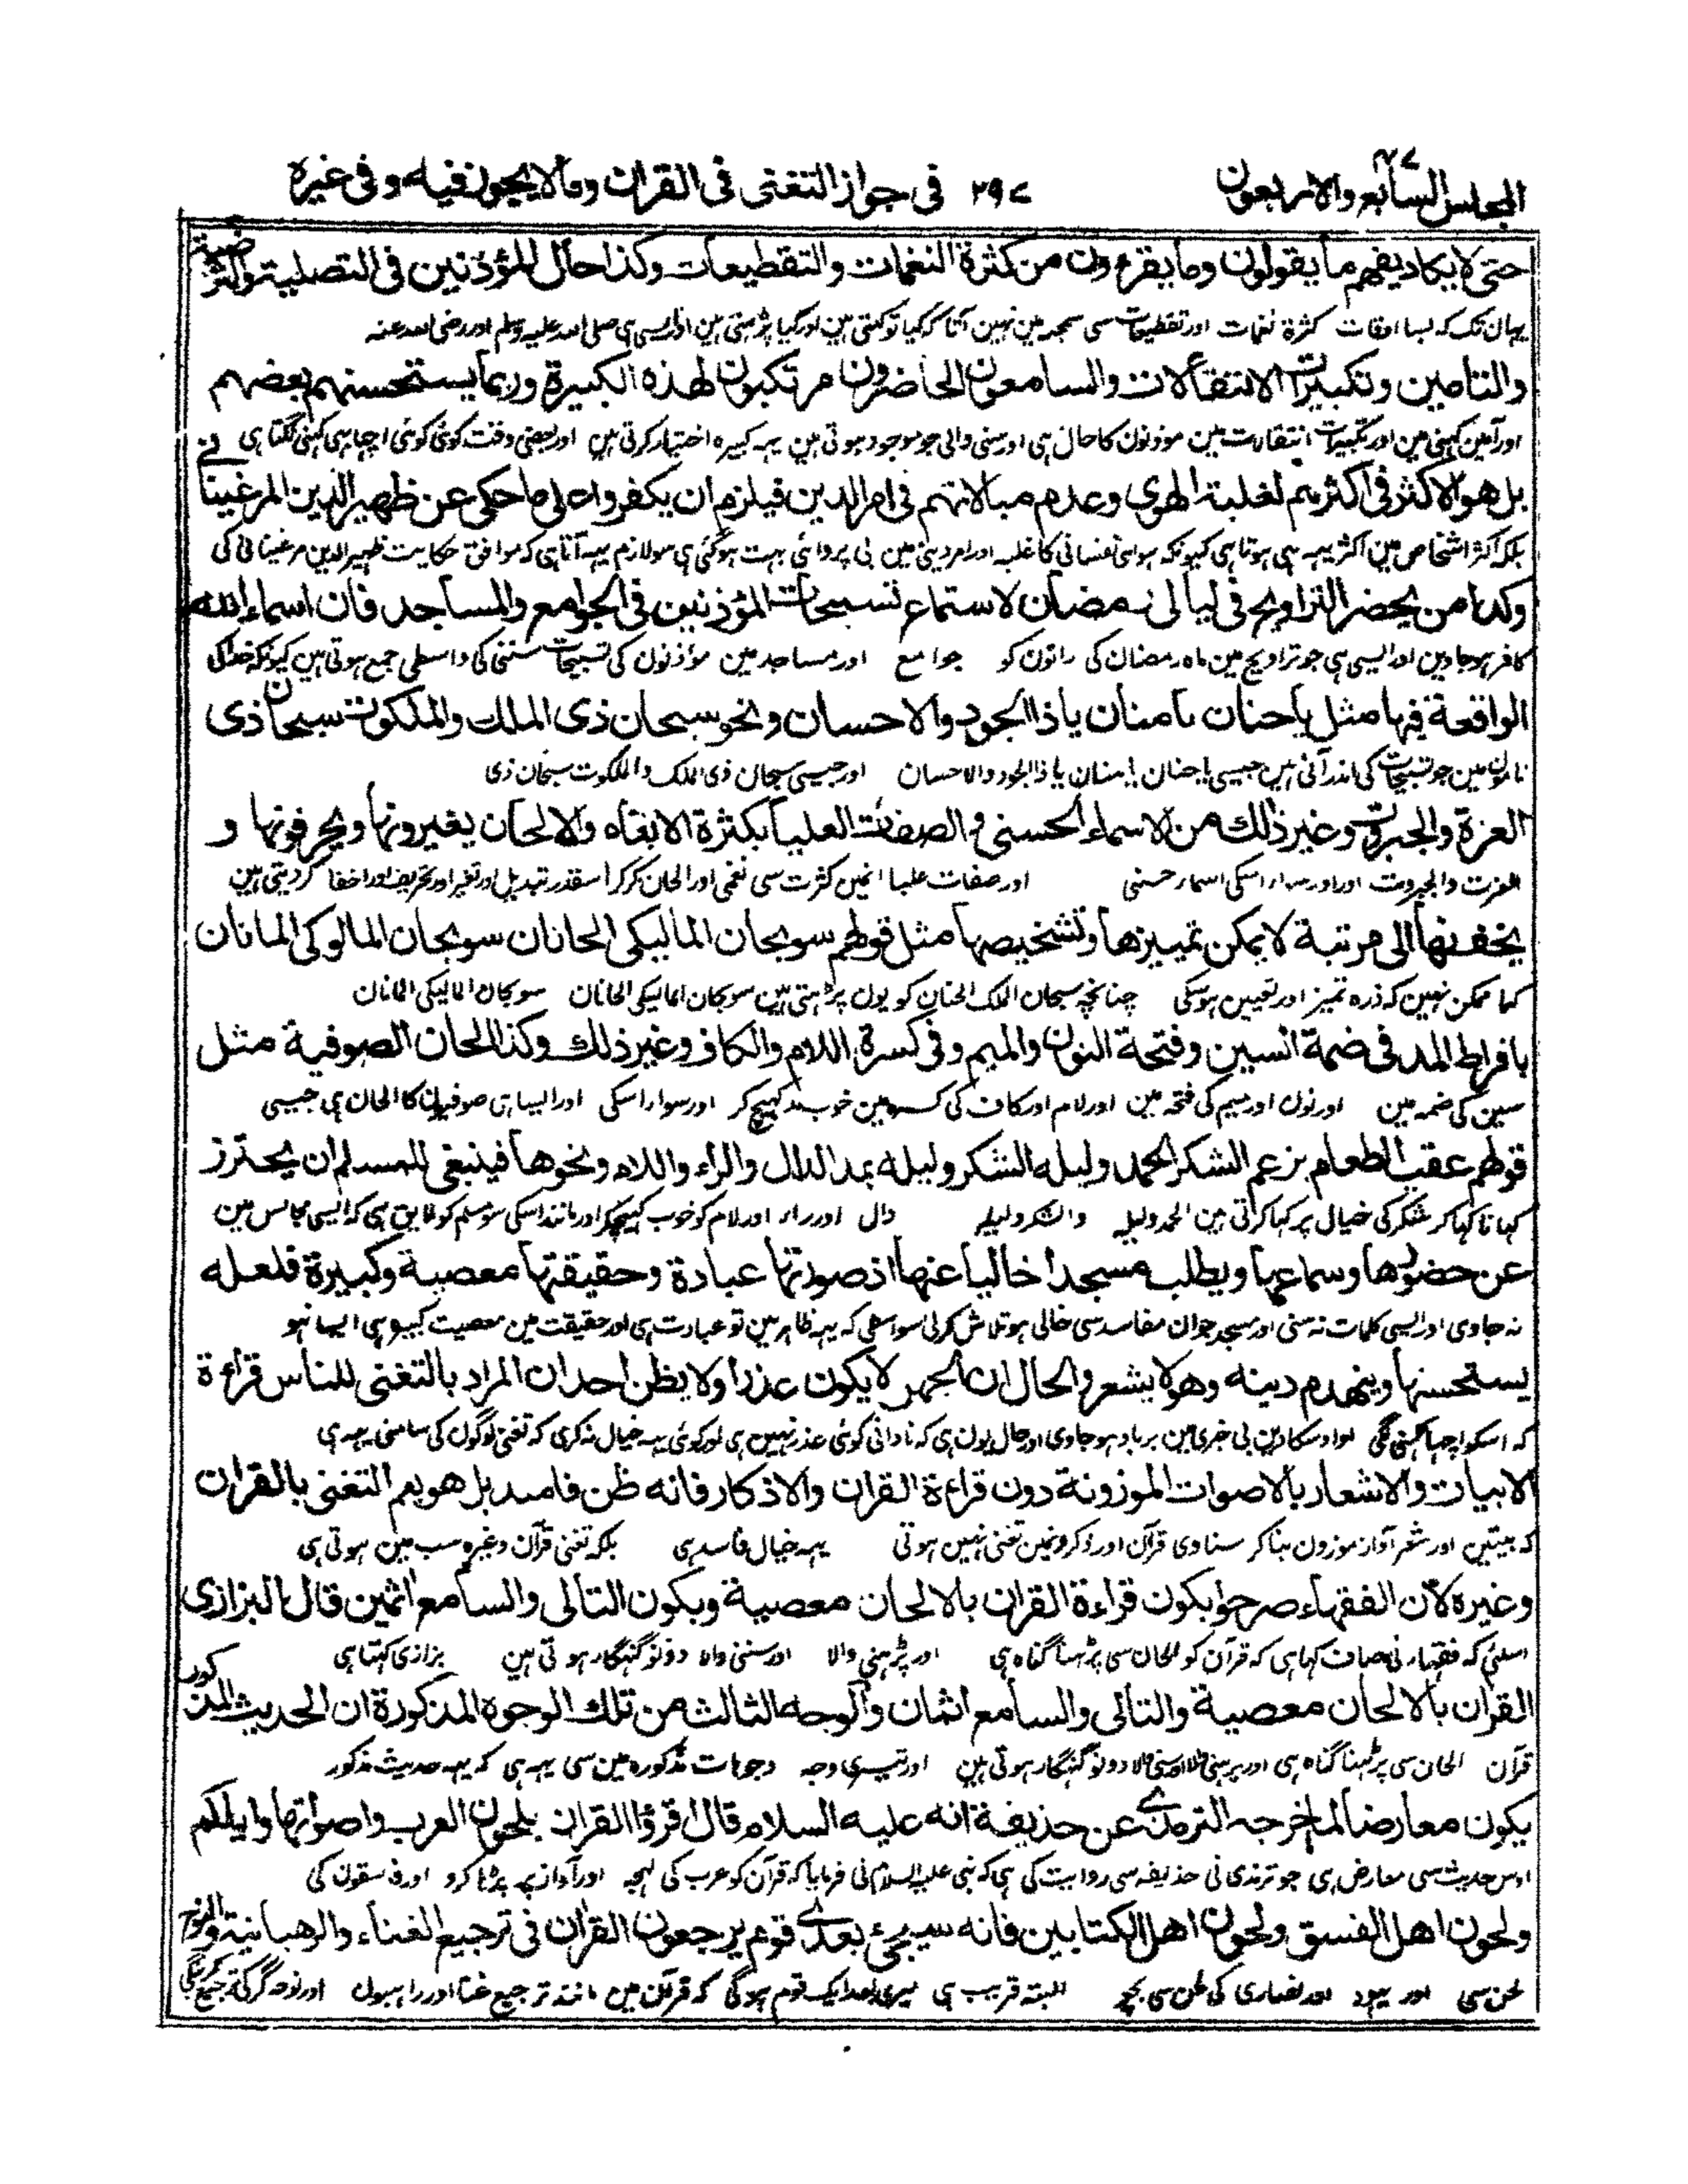 المجلس السابع والاربعون ٤٧ ٢٩٧ فی جواز التغنی فی القران وما لا یجوز فیه وفی غیره
حتی لا یکاد یفهم ما یقولون وما یقرءون من کثرة النغمات والتقطیعات وکذا حال المؤذنین فی التصلیة والترضیة
یہان تک کہ بسا اوقات کثرة نغمات اور تقطیعات سی سمجھ مین نہین آتا کہ کیا تو کہتی ہین اور کیا پڑہتی ہین اور ایسی ہی صلی اللہ علیہ وسلم اور رضی اللہ عنہ
والتامین وتکبیرات الانتقالات والسامعون الحاضرون مرتکبون لهذه الکبیرة وربما یستحسنهم بعضهم
اور آمین کہنی مین اور تکبیرات انتقالات مین موذنون کا حال ہی اور سننی والی جو موجود ہوتی ہین یہہ کبیرہ اختیار کرتی ہین اور بعضی وقت کوئی کوئی اچہا ہی کہنی لگتا ہی
بل هو الاکثر فی اکثرهم لغلبة الهوی وعدم مبالاتهم فی امر الدین فیلزم ان یکفروا علی ما حکی عن ظهیر الدین المرغینانی
بلکہ اکثر اشخاص مین اکثر یہہ ہی ہوتا ہی کیونکہ ہوای نفسانی کا غلبہ اور امر دینی مین بی پروائی بہت ہوگئی ہی سو لازم یہہ آتا ہی کہ موافق حکایت ظہیر الدین مرغینانی کی
وکذا من یحضر التراویح فی لیالی رمضان لاستماع تسبیحات المؤذنین فی الجوامع والمساجد فان اسماء الله
کافر ہو جاوین اور ایسی ہی جو تراویح مین ماہ رمضان کی راتون کو جوامع اور مساجد مین مؤذنون کی تسبیحات سننی کی واسطی جمع ہوتی ہین کیونکہ خدا کی
الواقعة فیها مثل یا حنان یا منان یا ذا الجود والاحسان ونحو سبحان ذی الملك والملکوت سبحان ذی
نامون مین جو تسبیحات کی اندر آتی ہین جیسی یا حنان یا منان یا ذا الجود والاحسان اور جیسی سبحان ذی الملک والملکوت سبحان ذی
العزة والجبروت وغیر ذلك من الاسماء الحسنی والصفات العلیا بکثرة الابقاه والالحان یغیرونها ویحرفونها و
العزت والجبروت اور اور سوا اسکی اسماء حسنی اور صفات علیا انمین کثرت سی نغمی اور الحان کرکر اسقدر تبدیل اور تغیر اور تحریف اور اخفا کر دیتی ہین
یخفونها الی مرتبة لا یمکن تمییزها وتشخیصها مثل قولهم سوبحان المالیکی الحانان سوبحان المالوکی المانان
کہ ممکن نہین کہ ذرہ تمیز اور تعیین ہوسکی چنانچہ سبحان الملک الحنان کو یون پڑہتی ہین سوبحان المالیکی الحانان سوبحان المالیکی المانان
بافراط المد فی ضمة السین وفتحة النون والمیم وفی کسرة اللام والکاف وغیر ذلك وکذا الحان الصوفیة مثل
سین کی ضمہ مین اور نون اور میم کی فتحہ مین اور لام اور کاف کی کسرہ مین خوب مد کہینچکر اور سوا اسکی اور ایسا ہی صوفیون کا الحان ہی جیسی
قولهم عقیب الطعام بزعم الشکر الحمد ولیله الشکر ولیله بمد الدال والراء واللام ونحوها فینبغی للمسلم ان یحترز
کہانا کہا کر شکر کی خیال پر کہا کرتی ہین الحمد ولیلہ والشکر ولیلہ دال اور راء اور لام کو خوب کہینچکر اور مانند اسکی سو مسلم کو لایق ہی کہ ایسی مجالس مین
عن حضورها وسماعها ویطلب مسجدا خالیا عنها اذ صورتها عبادة وحقیقتها معصیة وکبیرة فلعله
نہ جاوی اور ایسی کلمات نہ سنی اور مسجد جو ان مفاسد سی خالی ہو تلاش کرلی سواسطی کہ یہہ ظاہر مین تو عبادت ہی اور حقیقت مین معصیت کبیرہ ہی ایسا نہو
یستحسنها وینهدم دینه وهو لا یشعر والحال ان الجهل لا یکون عذرا ولا یظن احد ان المراد بالتغنی للناس قراءة
کہ اسکو اچہا کہنی لگی اور اوسکا دین بی خبری مین برباد ہو جاوی اور حال یون ہی کہ نادانی کوئی عذر نہین ہی اور کوئی یہہ خیال نہ کری کہ تغنی لوگون کی سامنی یہہ ہی
الابیات والاشعار بالاصوات الموزونة دون قراءة القران والاذکار فانه ظن فاسد بل هو یعم التغنی بالقران
کہ بیتین اور شعر آواز موزون بنا کر سنا وی قرآن اور ذکر ونمین تغنی نہین ہوتی یہہ خیال فاسد ہی بلکہ تغنی قرآن وغیرہ سب مین ہوتی ہی
وغیره لان الفقهاء صرحوا بکون قراءة القران بالالحان معصیة ویکون التالی والسامع اثمین قال البزازی
اسلئی کہ فقہاء نی صاف کہا ہی کہ قرآن کو الحان سی پڑہنا گناہ ہی اور پڑہنی والا اور سننی والا دونو گنہگار ہوتی ہین بزازی کہتا ہی
القران بالالحان معصیة والتالی والسامع اثمان والوجه الثالث من تلك الوجوه المذکورة ان الحدیث المذکور
قرآن الحان سی پڑہنا گناہ ہی اور پڑہنی والا اور سننی والا دونو گنہگار ہوتی ہین اور تیسری وجہ وجوہات مذکورہ مین سی یہہ ہی کہ یہہ حدیث مذکور
یکون معارضا لما اخرجه الترمذی عن حذیفة انه علیه السلام قال اقرؤا القران بلحون العرب واصواتها وایاکم
اوس حدیث سی معارض ہی جو ترمذی نی حذیفہ سی روایت کی ہی کہ نبی علیہ السلام نی فرمایا کہ قرآن کو عرب کی لہجہ اور آواز پر پڑہا کرو اور فاسقون کی
ولحون اهل الفسق ولحون اهل الکتابین فانه سیجیء بعدی قوم یرجعون القران فی ترجیع الغناء والرهبانیة والنوح
لحن سی اور یہود اور نصاری کی لحن سی بچو البتہ قریب ہی میری بعد ایک قوم ہوگی کہ قرآن مین مانند ترجیع غنا اور راہبون اور نوحہ گر کی ترجیع کریگی